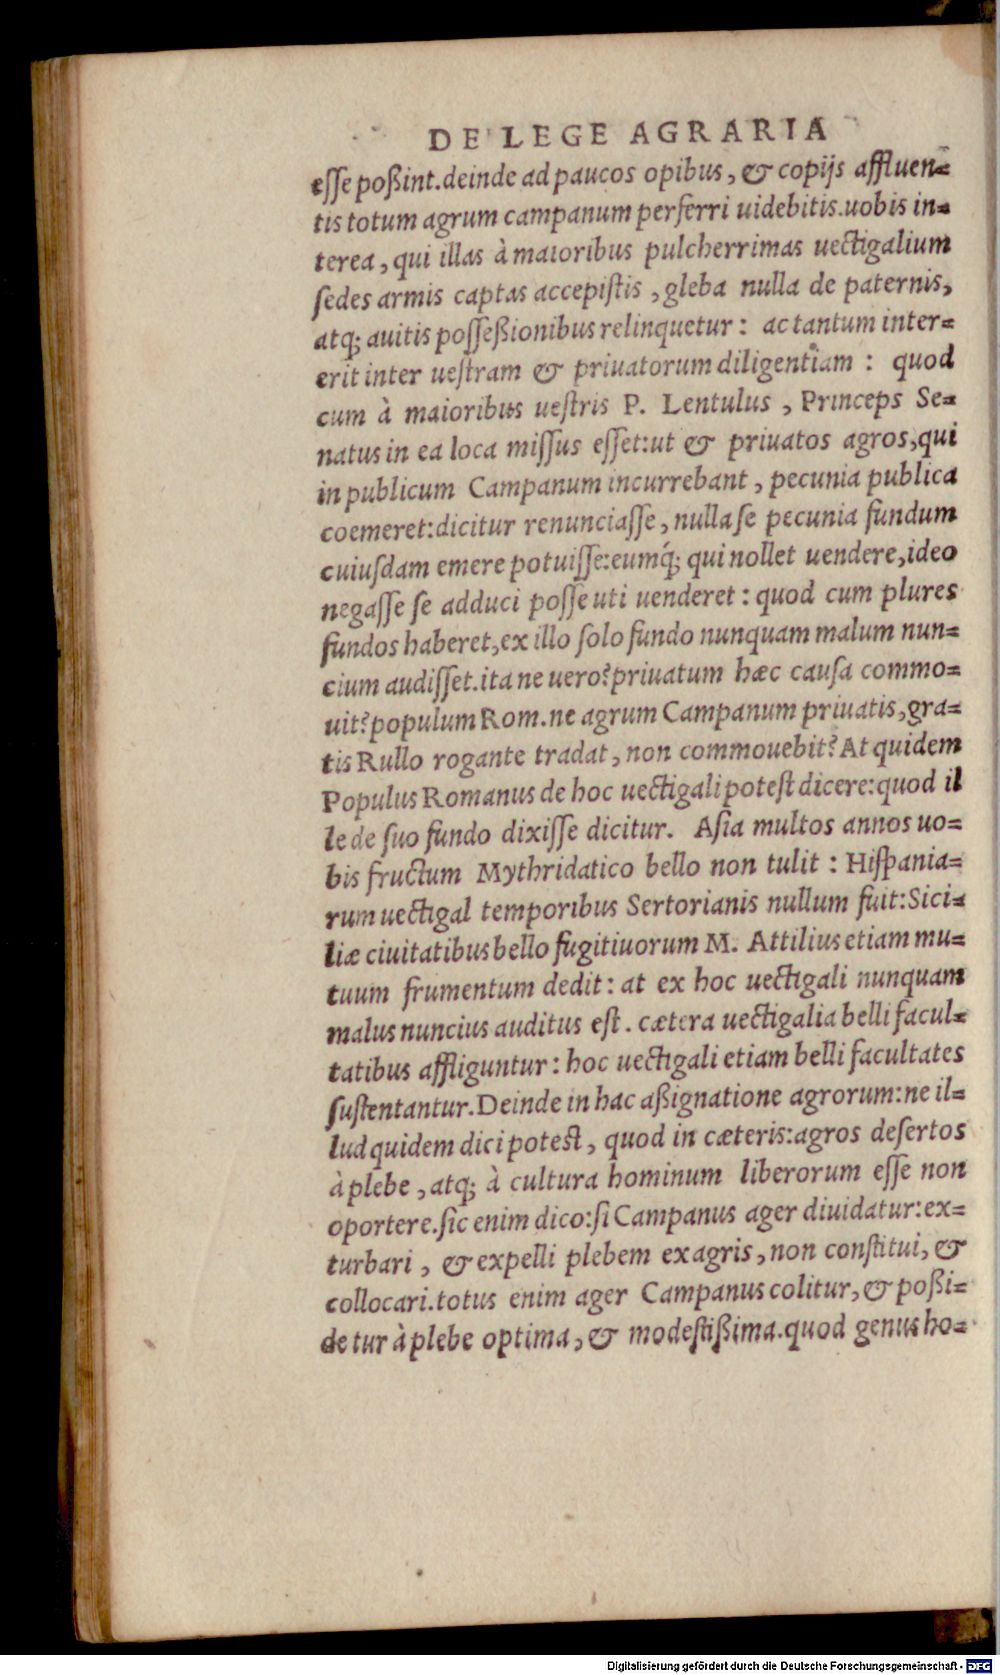 DE LEGE AGRARIA
esse poßint.deinde ad paucos opibus, & copijs affluen=
tis totum agrum campanum perferri uidebitis.uobis in=
terea, qui illas à maioribus pulcherrimas uectigalium
sedes armis captas accepistis, gleba nulla de paternis,
atq; auitis posseßionibus relinquetur: ac tantum inter=
erit inter uestram & priuatorum diligentiam: quod
cum à maioribus uestris P. Lentulus, Princeps Se=
natus in ea loca missus esset:ut & priuatos agros,qui
in publicum Campanum incurrebant, pecunia publica
coemeret:dicitur renunciasse, nulla se pecunia fundum
cuiusdam emere potuisse:eumq́; qui nollet uendere,ideo
negasse se adduci posse uti uenderet: quod cum plures
fundos haberet,ex illo solo fundo nunquam malum nun=
cium audisset.ita ne uero?priuatum hæc causa commo=
uit?populum Rom.ne agrum Campanum priuatis,gra=
tis Rullo rogante tradat, non commouebit? At quidem
Populus Romanus de hoc uectigali potest dicere:quod il
le de suo fundo dixisse dicitur. Asia multos annos uo=
bis fructum Mythridatico bello non tulit: Hispania=
rum uectigal temporibus Sertorianis nullum fuit:Sici=
liæ ciuitatibus bello fugitiuorum M. Attilius etiam mu=
tuum frumentum dedit: at ex hoc uectigali nunquam
malus nuncius auditus est. cætera uectigalia belli facul=
tatibus affliguntur: hoc uectigali etiam belli facultates
sustentantur.Deinde in hac aßignatione agrorum:ne il=
lud quidem dici potest, quod in cæteris:agros desertos
à plebe, atq; à cultura hominum liberorum esse non
oportere.sic enim dico:si Campanus ager diuidatur:ex=
turbari, & expelli plebem ex agris, non constitui, &
collocari.totus enim ager Campanus colitur, & poßi=
detur à plebe optima, & modestißima.quod genus ho=
Digitalisierung gefördert durch die Deutsche Forschungsgemeinschaft - DFG